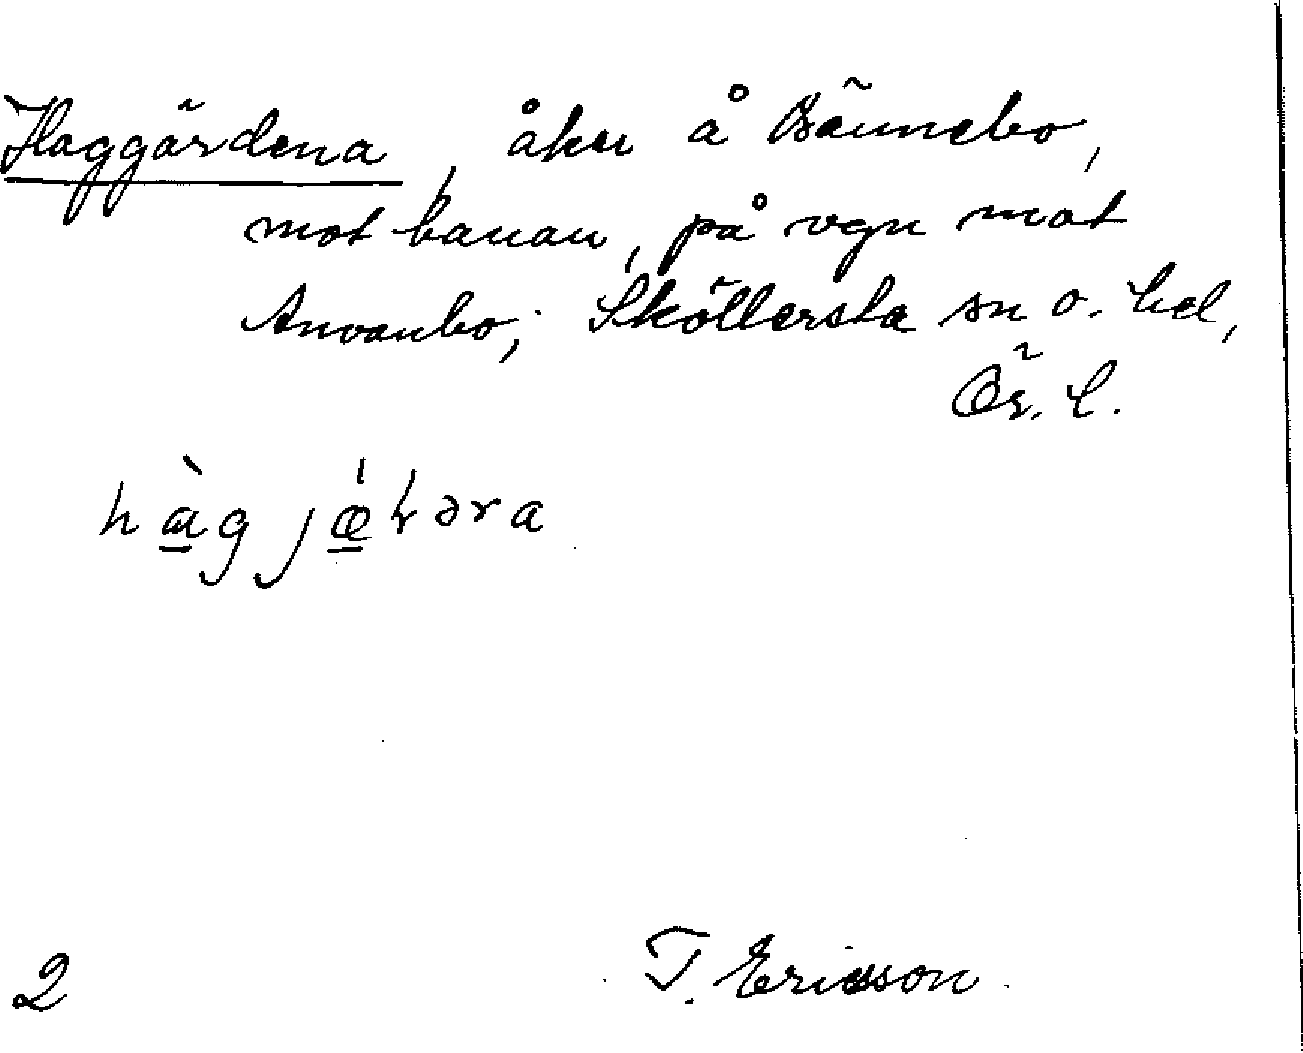 Haggärdena, åker å Bännebo,
mot banan, på vgn mot
Anvanbo; Sköllersta sn o. hd,
Ör. l.
2
T. Ericsson